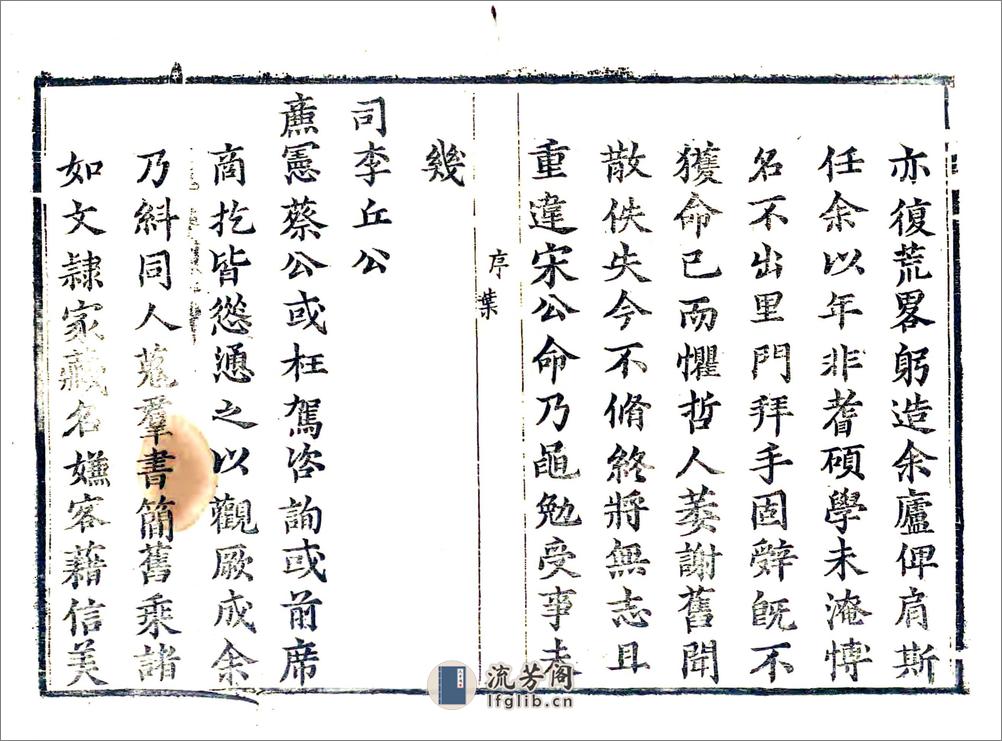 亦復荒畧躬造余廬俾肩斯
任余以年非耆碩學未淹愽
名不出里門拜手固辤旣不
獲命已而懼哲人萎謝舊聞
散佚失今不脩終將無志且
重違宋公命乃黽勉受事未
序 葉
幾
司李丘公
廌憲蔡公或枉駕咨詢或前席
商扢皆慫恿之以觀厥成余
乃糾同人蒐羣書簡舊乘諸
如文隷家藏名嬚客藉信美
流芳阁
lfglib.cn